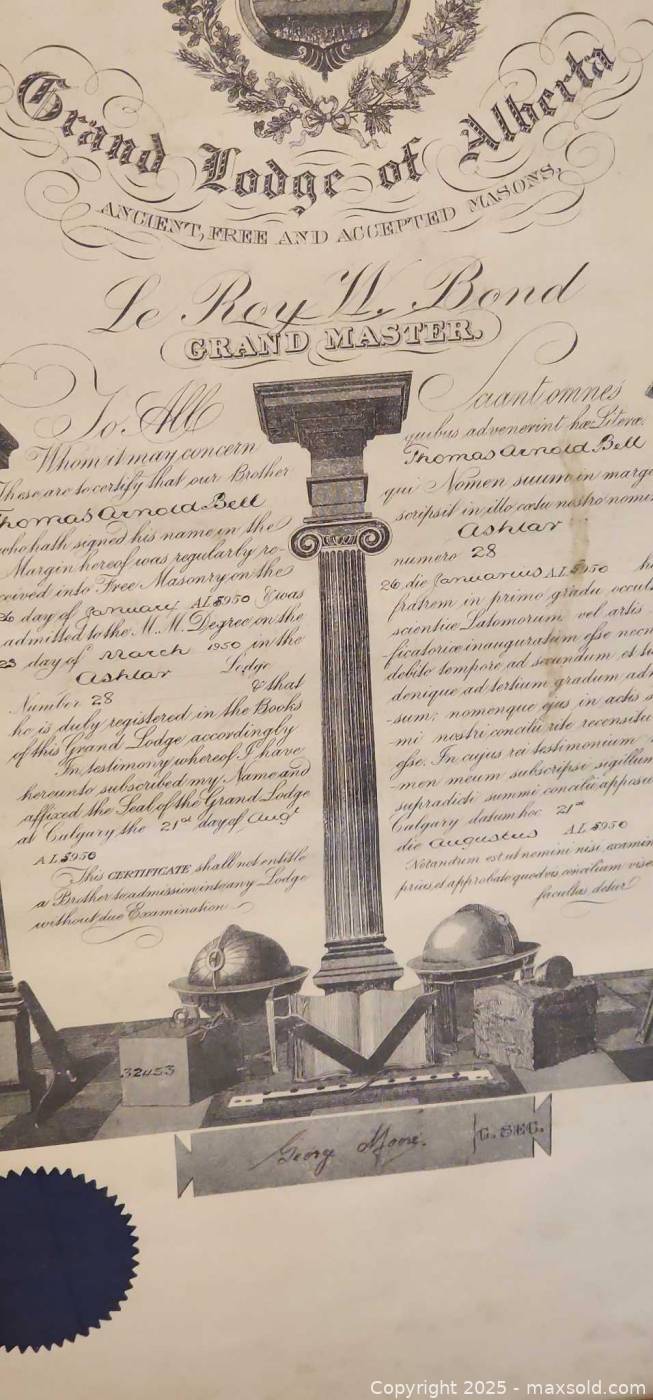 Grand Lodge of Alberta
ANCIENT, FREE AND ACCEPTED MASONS,
Le Roy W. Bond
GRAND MASTER.
To All
Whom it may concern
These are to certify that our Brother
Thomas Arnold Bell
who hath signed his name in the
Margin hereof was regularly re-
ceived into Free Masonry on the
26 day of January AL 5950 & was
admitted to the M. M. Degree on the
23 day of March 1950 in the
Ashlar Lodge
Number 28 & that
he is duly registered in the Books
of this Grand Lodge accordingly
In testimony whereof I have
hereunto subscribed my Name and
affixed the Seal of the Grand Lodge
at Calgary the 21st day of Augt
AL 5950
This CERTIFICATE shall not entitle
a Brother to admission into any Lodge
without due Examination
Sciant omnes
quibus advenerint hæ Literæ
Thomas Arnold Bell
qui Nomen suum in marg
scripsit in illo cœtu nostro nomi
Ashlar
numero 28
26 die Januarius AL 5950
fratrem in primo gradu occult
scientiæ Latomorum vel artis
ficatoriæ inauguratum esse necn
debito tempore ad secundum et tu
denique ad tertium gradum adm
sum; nomenque ejus in actis s
mi nostri concilii rite recensitu
esse. In cujus rei testimonium
men meum subscripsi sigillum
supradicti summi concilii apposu
Calgary datum hoc 21st
die Augustus AL 5950
Notandum est ut nemini nisi examin
prius, et approbato quodvis concilium vise
facultas detur
32453
George Moore.
G. SEC.
Copyright 2025 - maxsold.com